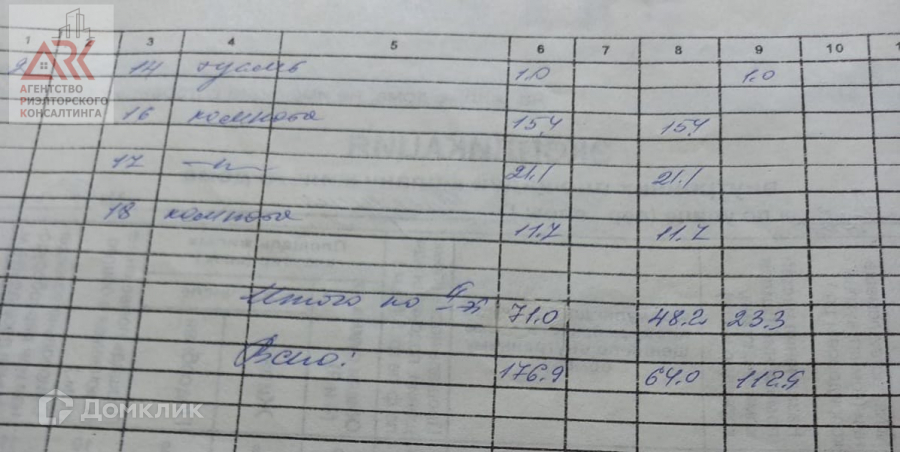 1 2 3 4 5 6 7 8 9 10
2 14 1.0 1.0
16 комната 15,4 15,4
17 —//— 21.1 21.1
18 комната 11.7 11.7
Итого по II эт 71.0 48.2 23.3
Всего: 176.9 64.0 112.9
ARK
АГЕНТСТВО
РИЭЛТОРСКОГО
КОНСАЛТИНГА
Домклик